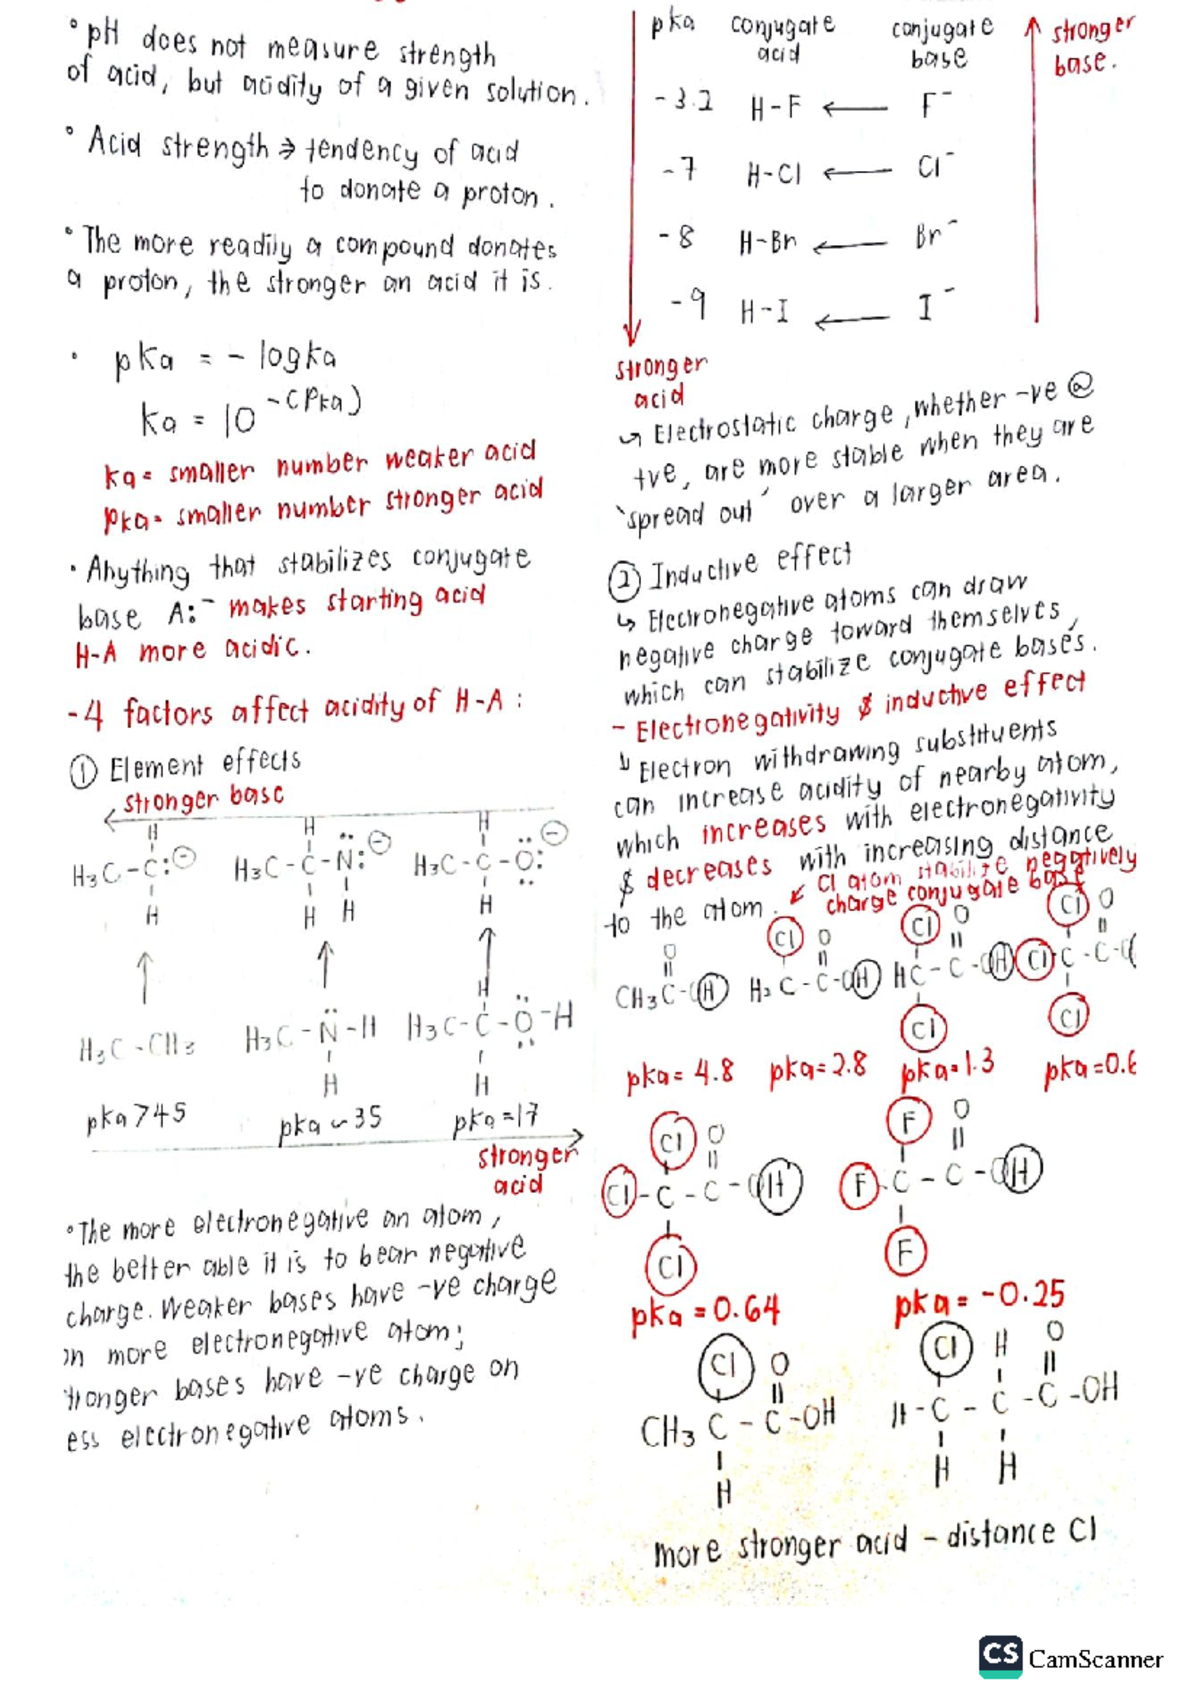 ° pH does not measure strength
of acid, but acidity of a given solution.
° Acid strength → tendency of acid
to donate a proton.
° The more readily a compound donates
a proton, the stronger an acid it is.
• pKa = - log ka
ka = 10 -(Pka)
ka = smaller number weaker acid
pka = smaller number stronger acid
• Anything that stabilizes conjugate
base A:⁻ makes starting acid
H-A more acidic.
- 4 factors affect acidity of H-A :
① Element effects
stronger base
H H H
H₃C - C:⊖ H₃C - C - N:⊖ H₃C - C - O:⊖
H H H H
H
H₃C - CH₃ H₃C - N - H H₃C - C - O - H
H H
pka > 45 pka ~ 35 pka = 17
stronger
acid
° The more electronegative an atom,
the better able it is to bear negative
charge. Weaker bases have -ve charge
on more electronegative atom;
tronger bases have -ve charge on
ess electronegative atoms.
pka conjugate acid conjugate base stronger base.
-3.2 H-F ← F⁻
-7 H-Cl ← Cl⁻
-8 H-Br ← Br⁻
-9 H-I ← I⁻
stronger
acid
↪ Electrostatic charge, whether -ve @
tve, are more stable when they are
'spread out' over a larger area.
② Inductive effect
↪ Electronegative atoms can draw
negative charge toward themselves,
which can stabilize conjugate bases.
- Electronegativity & inductive effect
↳ Electron withdrawing substituents
can increase acidity of nearby atom,
which increases with electronegativity
& decreases with increasing distance
to the atom. ↙ Cl atom stabilize negatively
charge conjugate base
O Cl O Cl O Cl O
CH₃C - OH H₂C - C - OH HC - C - OH Cl C - C - (
Cl Cl
pka = 4.8 pka = 2.8 pka = 1.3 pka = 0.6
Cl O F O
Cl - C - C - OH F - C - C - OH
Cl F
pka = 0.64 pka = -0.25
Cl O Cl H O
CH₃ C - C - OH H - C - C - C - OH
H H H
more stronger acid - distance Cl
CS CamScanner